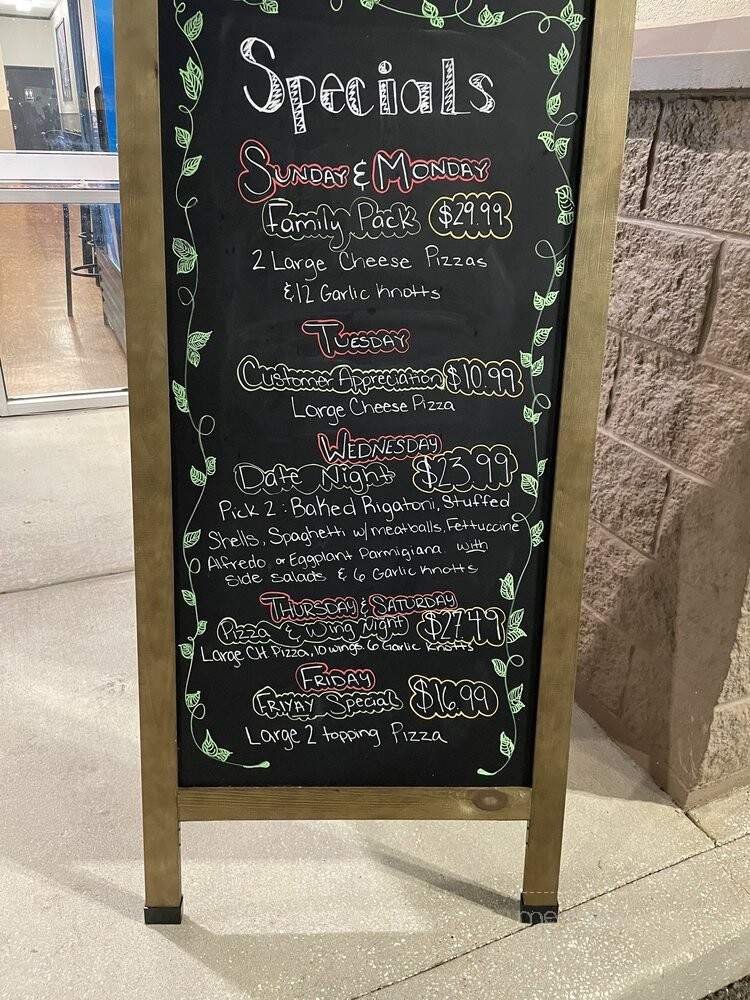 Specials
SUNDAY & MONDAY
Family Pack $29.99
2 Large Cheese Pizzas
& 12 Garlic Knotts
TUESDAY
Customer Appreciation $10.99
Large Cheese Pizza
WEDNESDAY
Date Night $23.99
Pick 2: Baked Rigatoni, Stuffed
Shells, Spaghetti w/ meatballs, Fettuccine
Alfredo or Eggplant Parmigiana with
side salads & 6 Garlic Knotts
THURSDAY & SATURDAY
Pizza & Wing Night $27.49
Large CH Pizza, 10 wings 6 Garlic Knotts
FRIDAY
FRIYAY Special $16.99
Large 2 topping Pizza